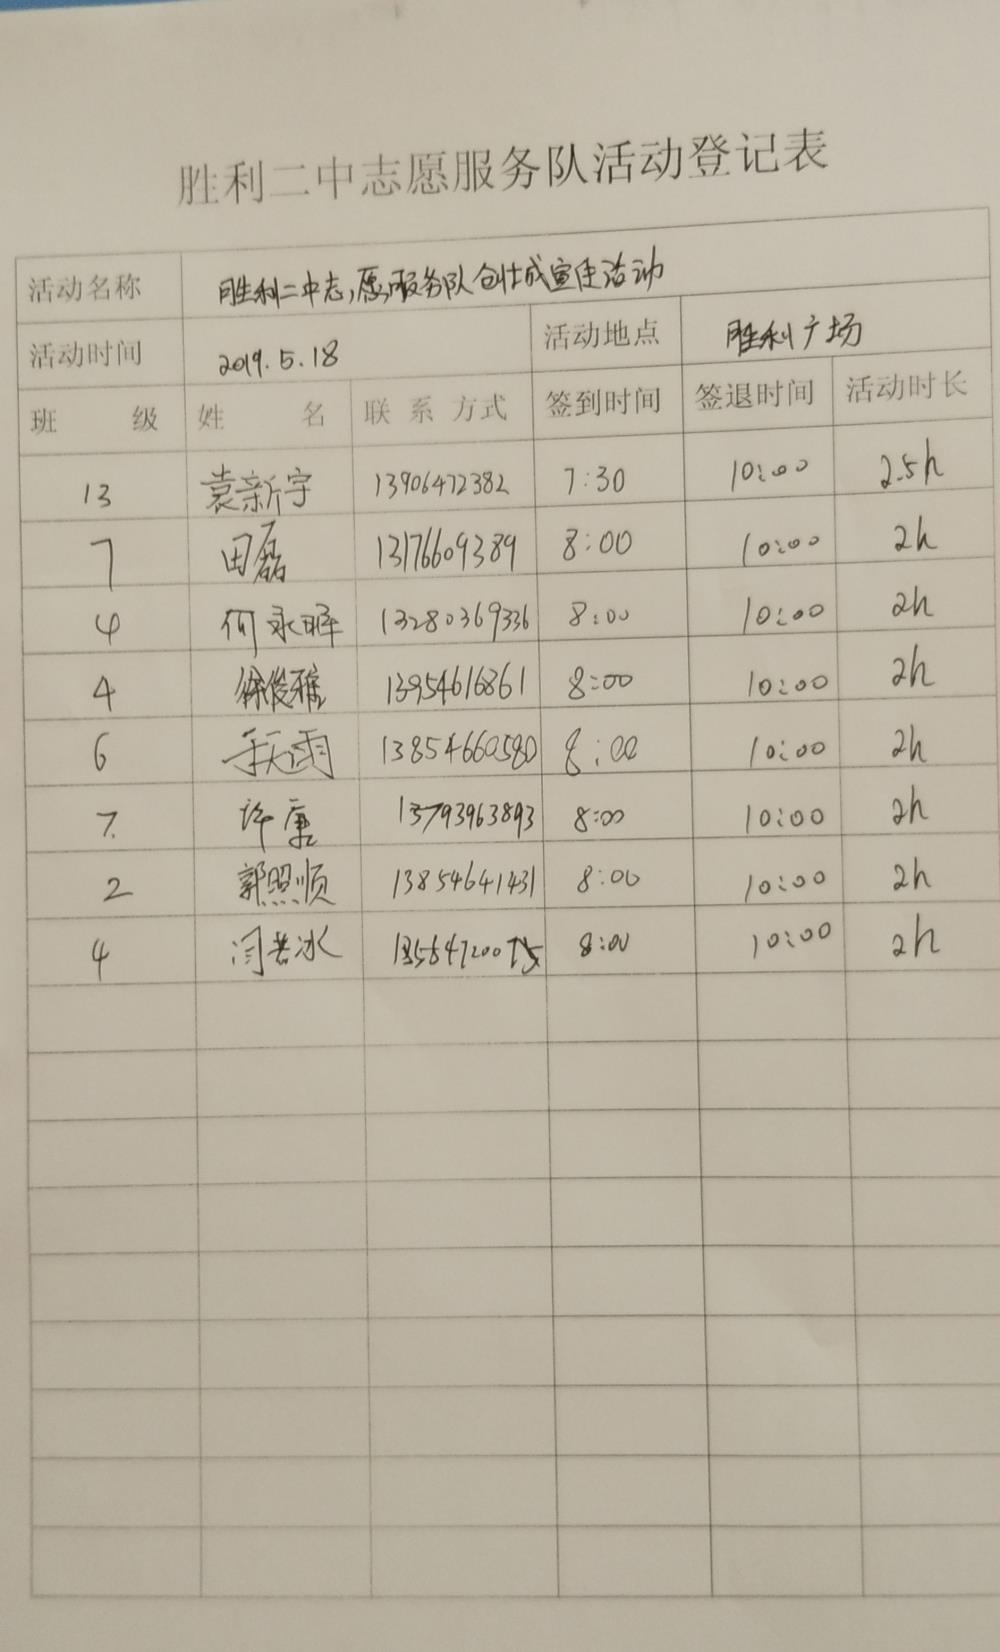 胜利二中志愿服务队活动登记表
活动名称 胜利二中志愿服务队创城宣传活动
活动时间 2019.5.18 活动地点 胜利广场
班 级 姓 名 联 系 方式 签到时间 签退时间 活动时长
13 袁新宇 13906472382 7:30 10:00 2.5h
7 田磊 13176609389 8:00 10:00 2h
4 何永晖 13280369336 8:00 10:00 2h
4 徐俊雅 13954616861 8:00 10:00 2h
6 于天雨 13854660580 8:00 10:00 2h
7. 许康 13793963893 8:00 10:00 2h
2 郭照顺 13854641431 8:00 10:00 2h
4 闫若冰 8:00 10:00 2h